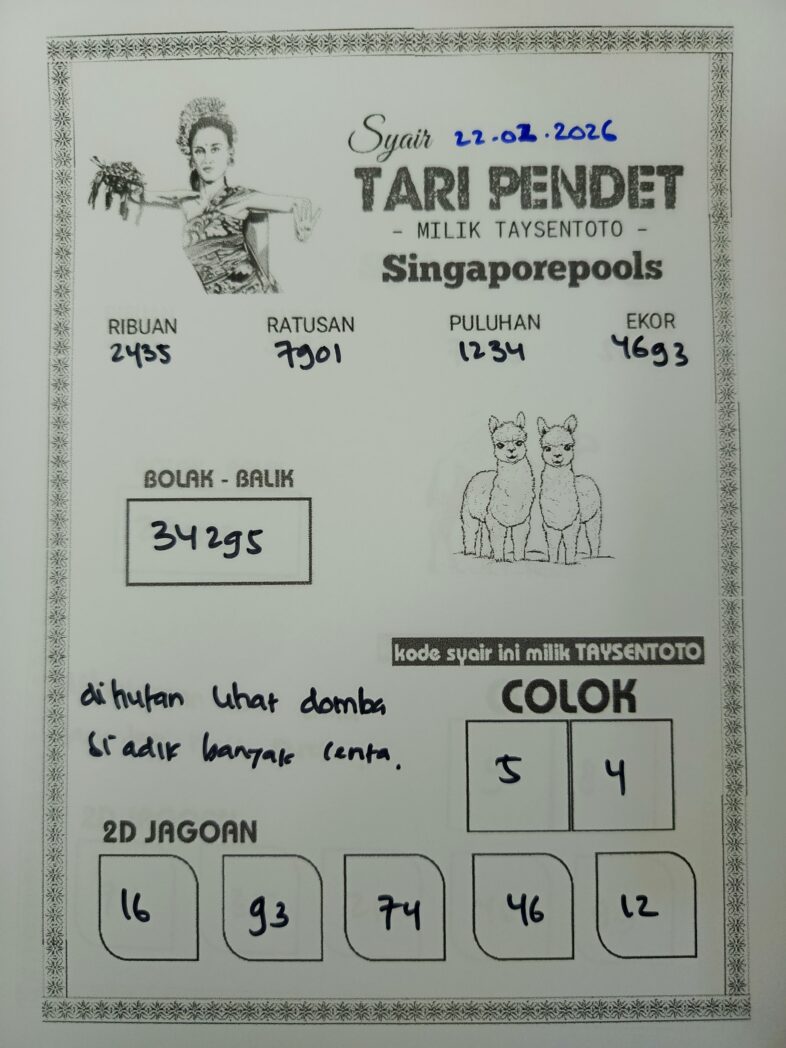 Syair 22.02.2026
TARI PENDET
- MILIK TAYSENTOTO -
Singaporepools
RIBUAN RATUSAN PULUHAN EKOR
2435 7901 1234 4693
BOLAK - BALIK
34295
kode syair ini milik TAYSENTOTO
dihutan lihat domba
si adik banyak cerita.
COLOK
5 4
2D JAGOAN
16 93 74 46 12